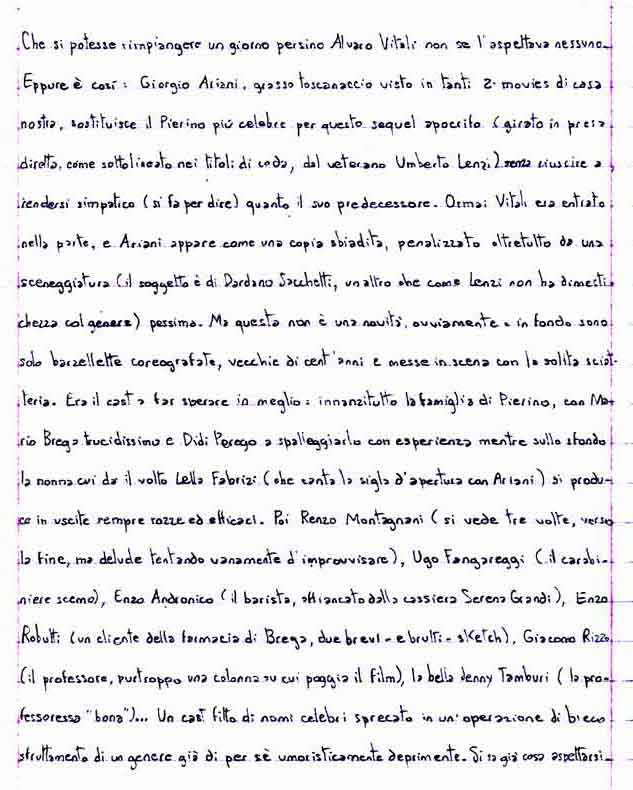 Che si potesse rimpiangere un giorno persino Alvaro Vitali non se l'aspettava nessuno.
Eppure è così: Giorgio Ariani, grasso toscanaccio visto in tanti Z-movies di casa
nostra, sostituisce il Pierino più celebre per questo sequel apocrifo (girato in presa
diretta, come sottolineato nei titoli di coda, dal veterano Umberto Lenzi) senza riuscire a
rendersi simpatico (si fa per dire) quanto il suo predecessore. Ormai Vitali era entrato
nella parte, e Ariani appare come una copia sbiadita, penalizzato oltretutto da una
sceneggiatura (il soggetto è di Dardano Sacchetti, un altro che come Lenzi non ha dimesti-
chezza col genere) pessima. Ma questa non è una novità, ovviamente: in fondo sono
solo barzellette coreografate, vecchie di cent'anni e messe in scena con la solita sciat-
teria. Era il cast a far sperare in meglio: innanzitutto la famiglia di Pierino, con Ma-
rio Brega trucidissimo e Didi Perego a spalleggiarlo con esperienza mentre sullo sfondo
la nonna cui dà il volto Lella Fabrizi (che canta la sigla d'apertura con Ariani) si produ-
ce in uscite sempre rozze ed efficaci. Poi Renzo Montagnani (si vede tre volte, verso
la fine, ma delude tentando vanamente d'improvvisare), Ugo Fangareggi (il carabi-
niere scemo), Enzo Andronico (il barista, affiancato dalla cassiera Serena Grandi), Enzo
Robutti (un cliente della farmacia di Brega, due brevi - e brutti - sketch), Giacomo Rizzo
(il professore, purtroppo una colonna su cui poggia il film), la bella Jenny Tamburi (la pro-
fessoressa "bona")... Un cast fitto di nomi celebri sprecato in un'operazione di bieco
sfruttamento di un genere già di per sè umoristicamente deprimente. Si sa già cosa aspettarsi.